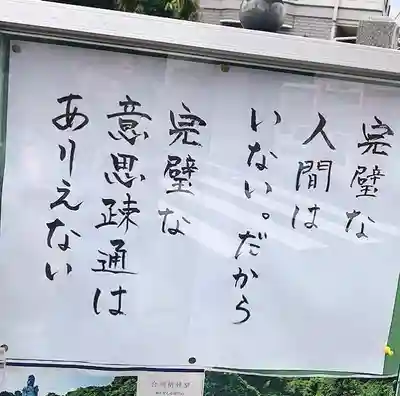 完璧な
人間は
いない。だから
完璧な
意思疎通は
ありえない